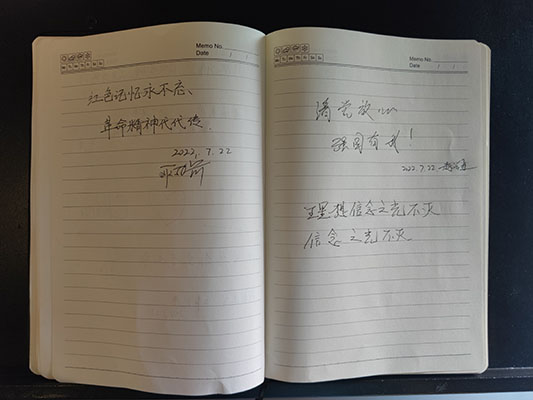 Memo No.
Date
红色记忆永不忘、
革命精神代代传.
2022.7.22
Memo No.
Date
请党放心
强国有我!
2022.7.22
理想信念之光不灭
信念之光不灭